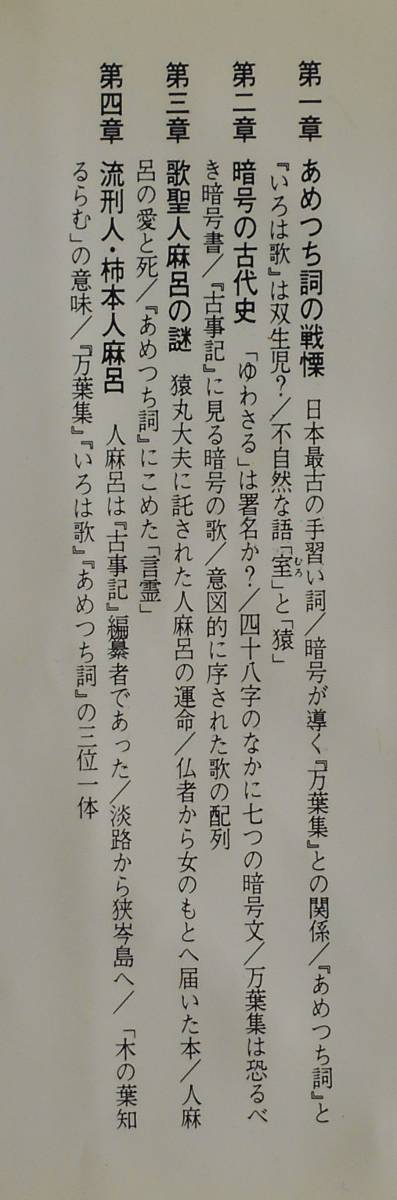 第一章　あめつち詞の戦慄　日本最古の手習い詞／暗号が導く『万葉集』との関係／『あめつち詞』と
『いろは歌』は双生児？／不自然な語「室」と「猿」
むろ
第二章　暗号の古代史　「ゆわさる」は署名か？／四十八字のなかに七つの暗号文／万葉集は恐るべ
き暗号書／『古事記』に見る暗号の歌／意図的に序された歌の配列
第三章　歌聖人麻呂の謎　猿丸大夫に託された人麻呂の運命／仏者から女のもとへ届いた本／人麻
呂の愛と死／『あめつち詞』にこめた「言霊」
第四章　流刑人・柿本人麻呂　人麻呂は『古事記』編纂者であった／淡路から狭岑島へ／「木の葉知
るらむ」の意味／『万葉集』『いろは歌』『あめつち詞』の三位一体